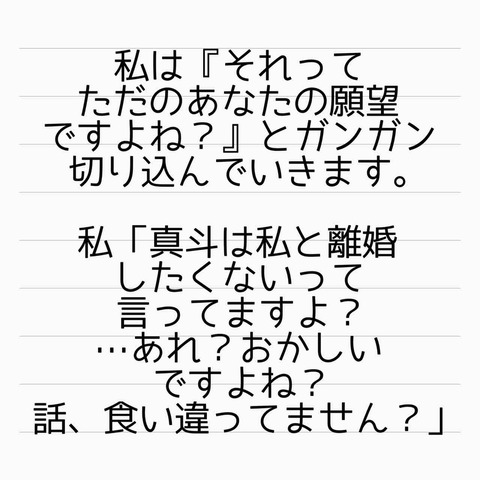 私は『それって
ただのあなたの願望
ですよね？』とガンガン
切り込んでいきます。
私「真斗は私と離婚
したくないって
言ってますよ？
…あれ？おかしい
ですよね？
話、食い違ってません？」